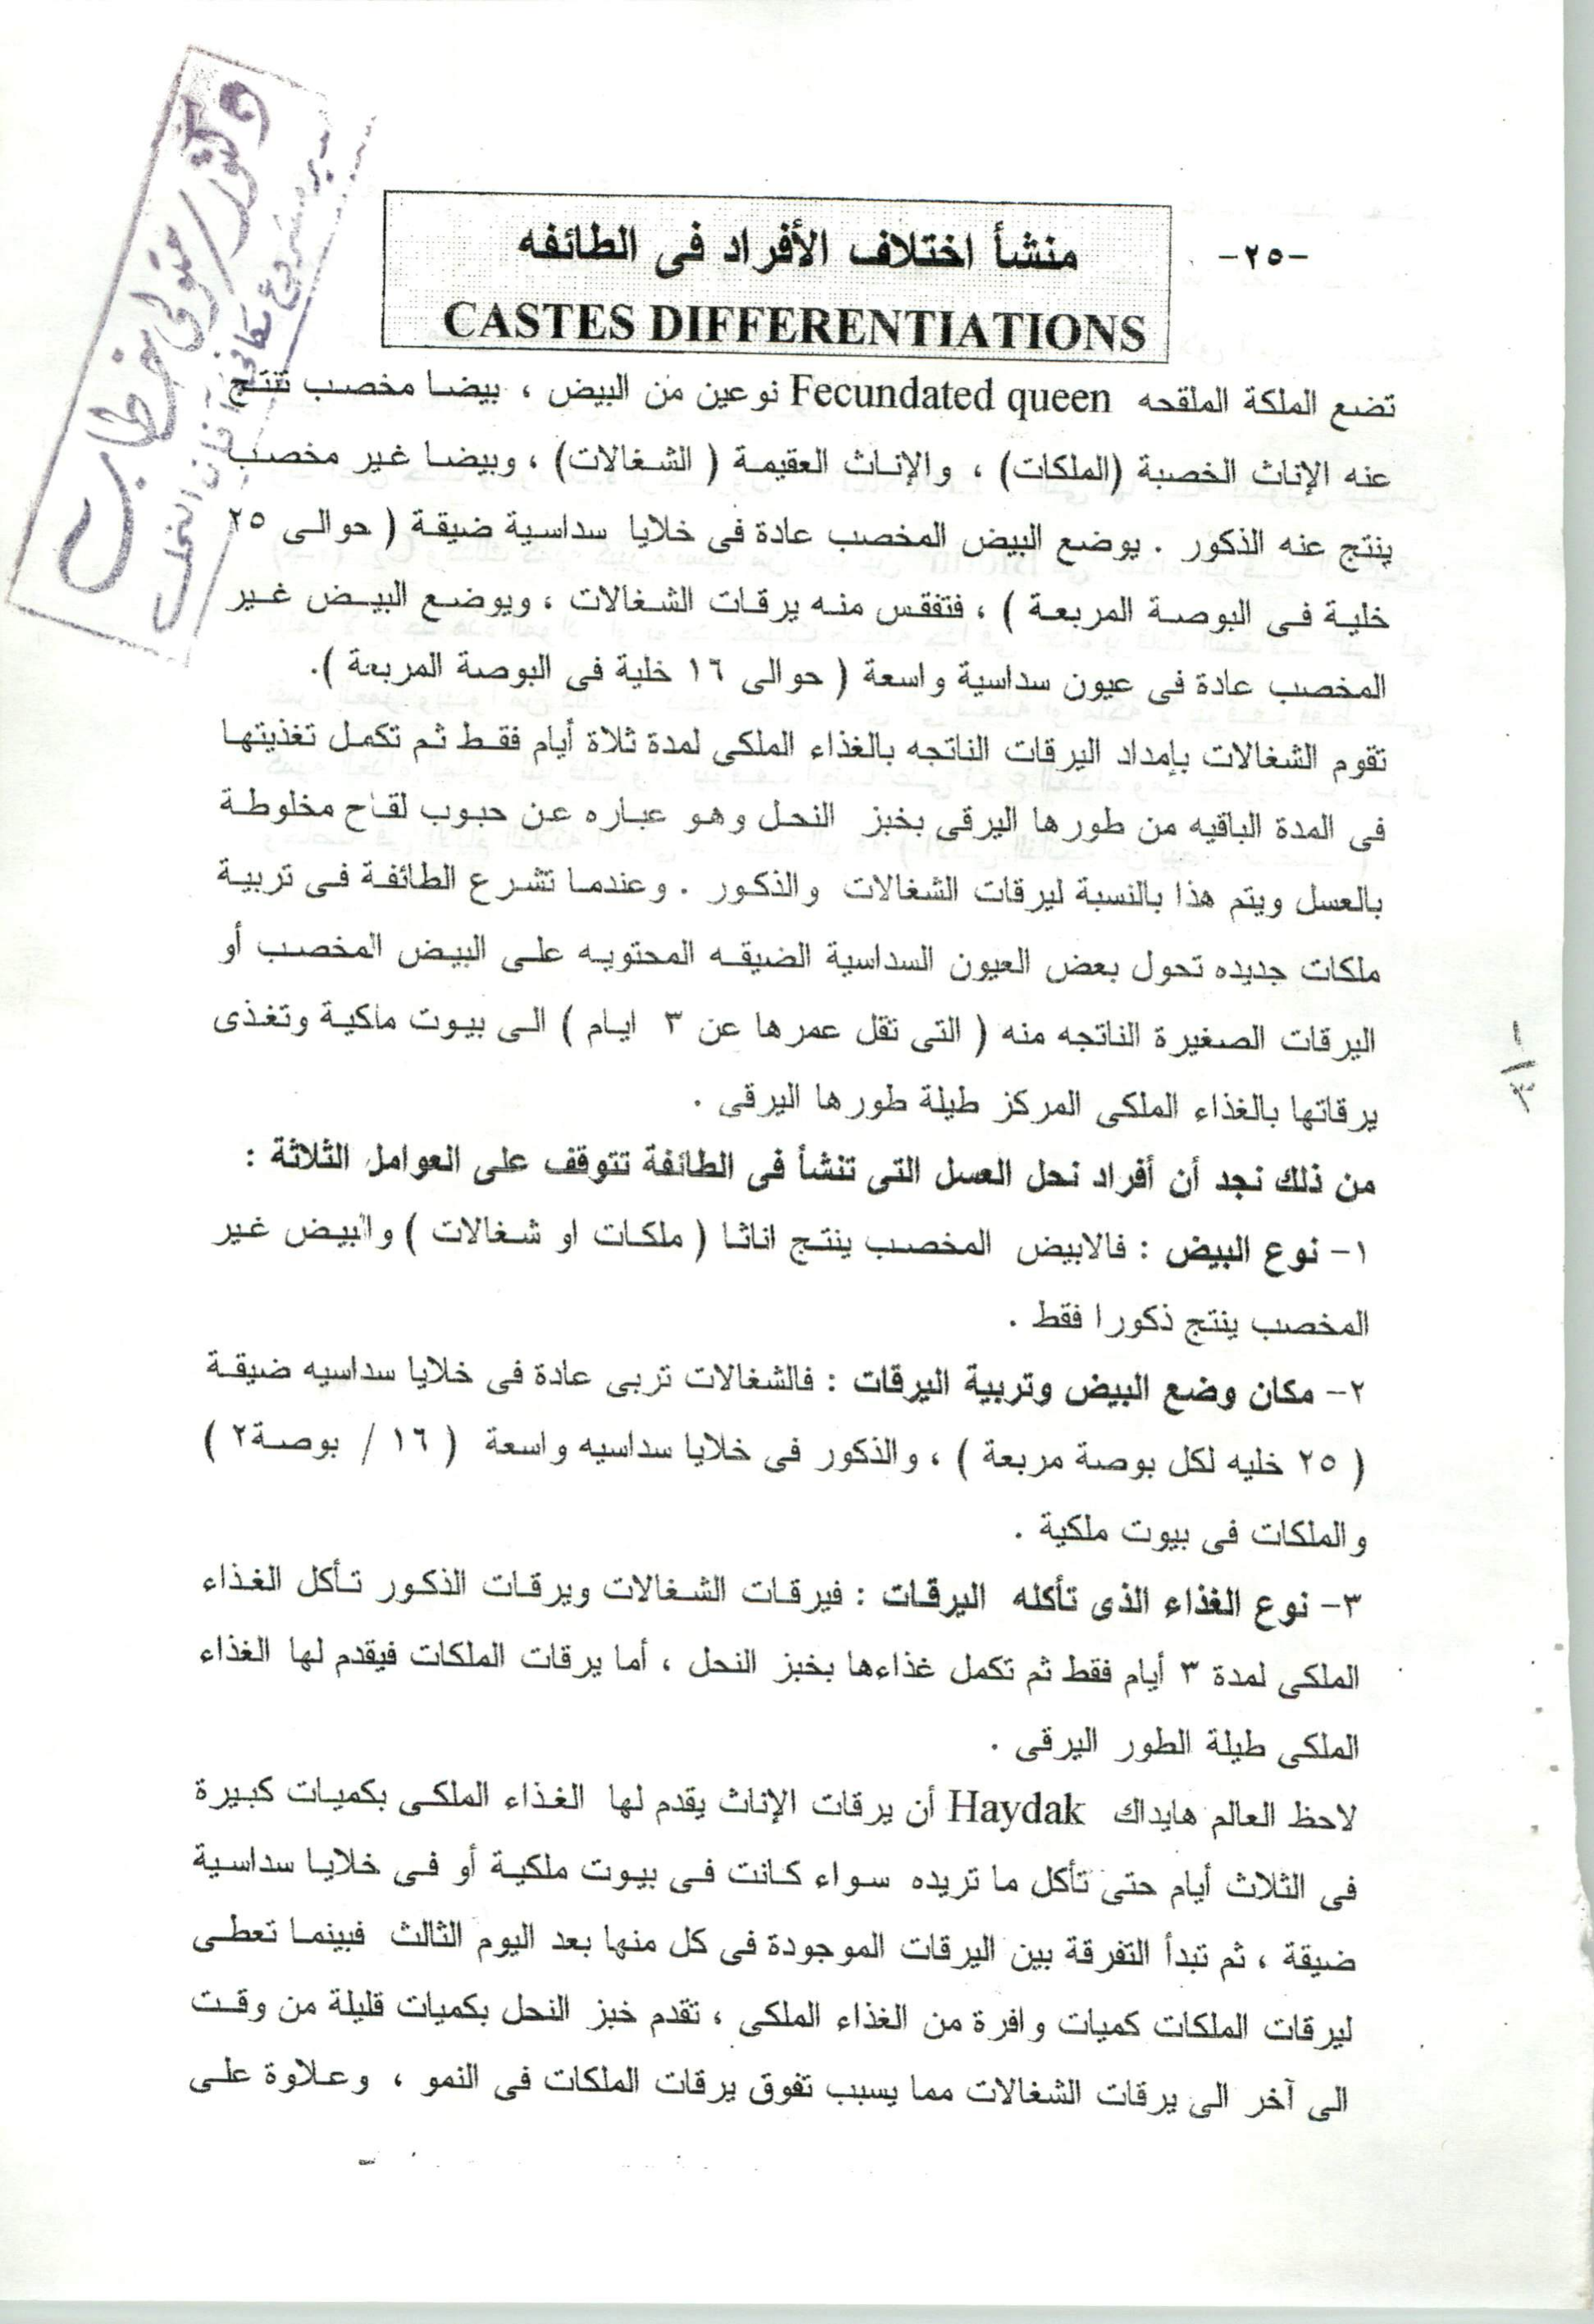 دكتور/متولى خطاب
مدير مشروع مكافحة آفات النحل
-٢٥-
منشأ اختلاف الأفراد فى الطائفه
CASTES DIFFERENTIATIONS
تضع الملكة الملقحه Fecundated queen نوعين من البيض ، بيضا مخصب تنتج
عنه الإناث الخصبة (الملكات) ، والإناث العقيمة ( الشغالات) ، وبيضا غير مخصب
ينتج عنه الذكور . يوضع البيض المخصب عادة فى خلايا سداسية ضيقة ( حوالى ٢٥
خلية فى البوصة المربعة ) ، فتفقس منه يرقات الشغالات ، ويوضع البيض غير
المخصب عادة فى عيون سداسية واسعة ( حوالى ١٦ خلية فى البوصة المربعة ).
تقوم الشغالات بإمداد اليرقات الناتجه بالغذاء الملكى لمدة ثلاة أيام فقط ثم تكمل تغذيتها
فى المدة الباقيه من طورها اليرقى بخبز النحل وهو عباره عن حبوب لقاح مخلوطة
بالعسل ويتم هذا بالنسبة ليرقات الشغالات والذكور . وعندما تشرع الطائفة فى تربية
ملكات جديده تحول بعض العيون السداسية الضيقه المحتويه على البيض المخصب أو
اليرقات الصغيرة الناتجه منه ( التى تقل عمرها عن ٣ ايام ) الى بيوت ملكية وتغذى
يرقاتها بالغذاء الملكى المركز طيلة طورها اليرقى .
من ذلك نجد أن أفراد نحل العسل التى تنشأ فى الطائفة تتوقف على العوامل الثلاثة :
١- نوع البيض : فالابيض المخصب ينتج اناثا ( ملكات او شغالات ) والبيض غير
المخصب ينتج ذكورا فقط .
٢- مكان وضع البيض وتربية اليرقات : فالشغالات تربى عادة فى خلايا سداسيه ضيقة
( ٢٥ خليه لكل بوصة مربعة ) ، والذكور فى خلايا سداسيه واسعة ( ١٦ / بوصة٢ )
والملكات فى بيوت ملكية .
٣- نوع الغذاء الذى تأكله اليرقات : فيرقات الشغالات ويرقات الذكور تأكل الغذاء
الملكى لمدة ٣ أيام فقط ثم تكمل غذاءها بخبز النحل ، أما يرقات الملكات فيقدم لها الغذاء
الملكى طيلة الطور اليرقى .
لاحظ العالم هايداك Haydak أن يرقات الإناث يقدم لها الغذاء الملكى بكميات كبيرة
فى الثلاث أيام حتى تأكل ما تريده سواء كانت فى بيوت ملكية أو فى خلايا سداسية
ضيقة ، ثم تبدأ التفرقة بين اليرقات الموجودة فى كل منها بعد اليوم الثالث فبينما تعطى
ليرقات الملكات كميات وافرة من الغذاء الملكى ، تقدم خبز النحل بكميات قليلة من وقت
الى آخر الى يرقات الشغالات مما يسبب تفوق يرقات الملكات فى النمو ، وعلاوة على